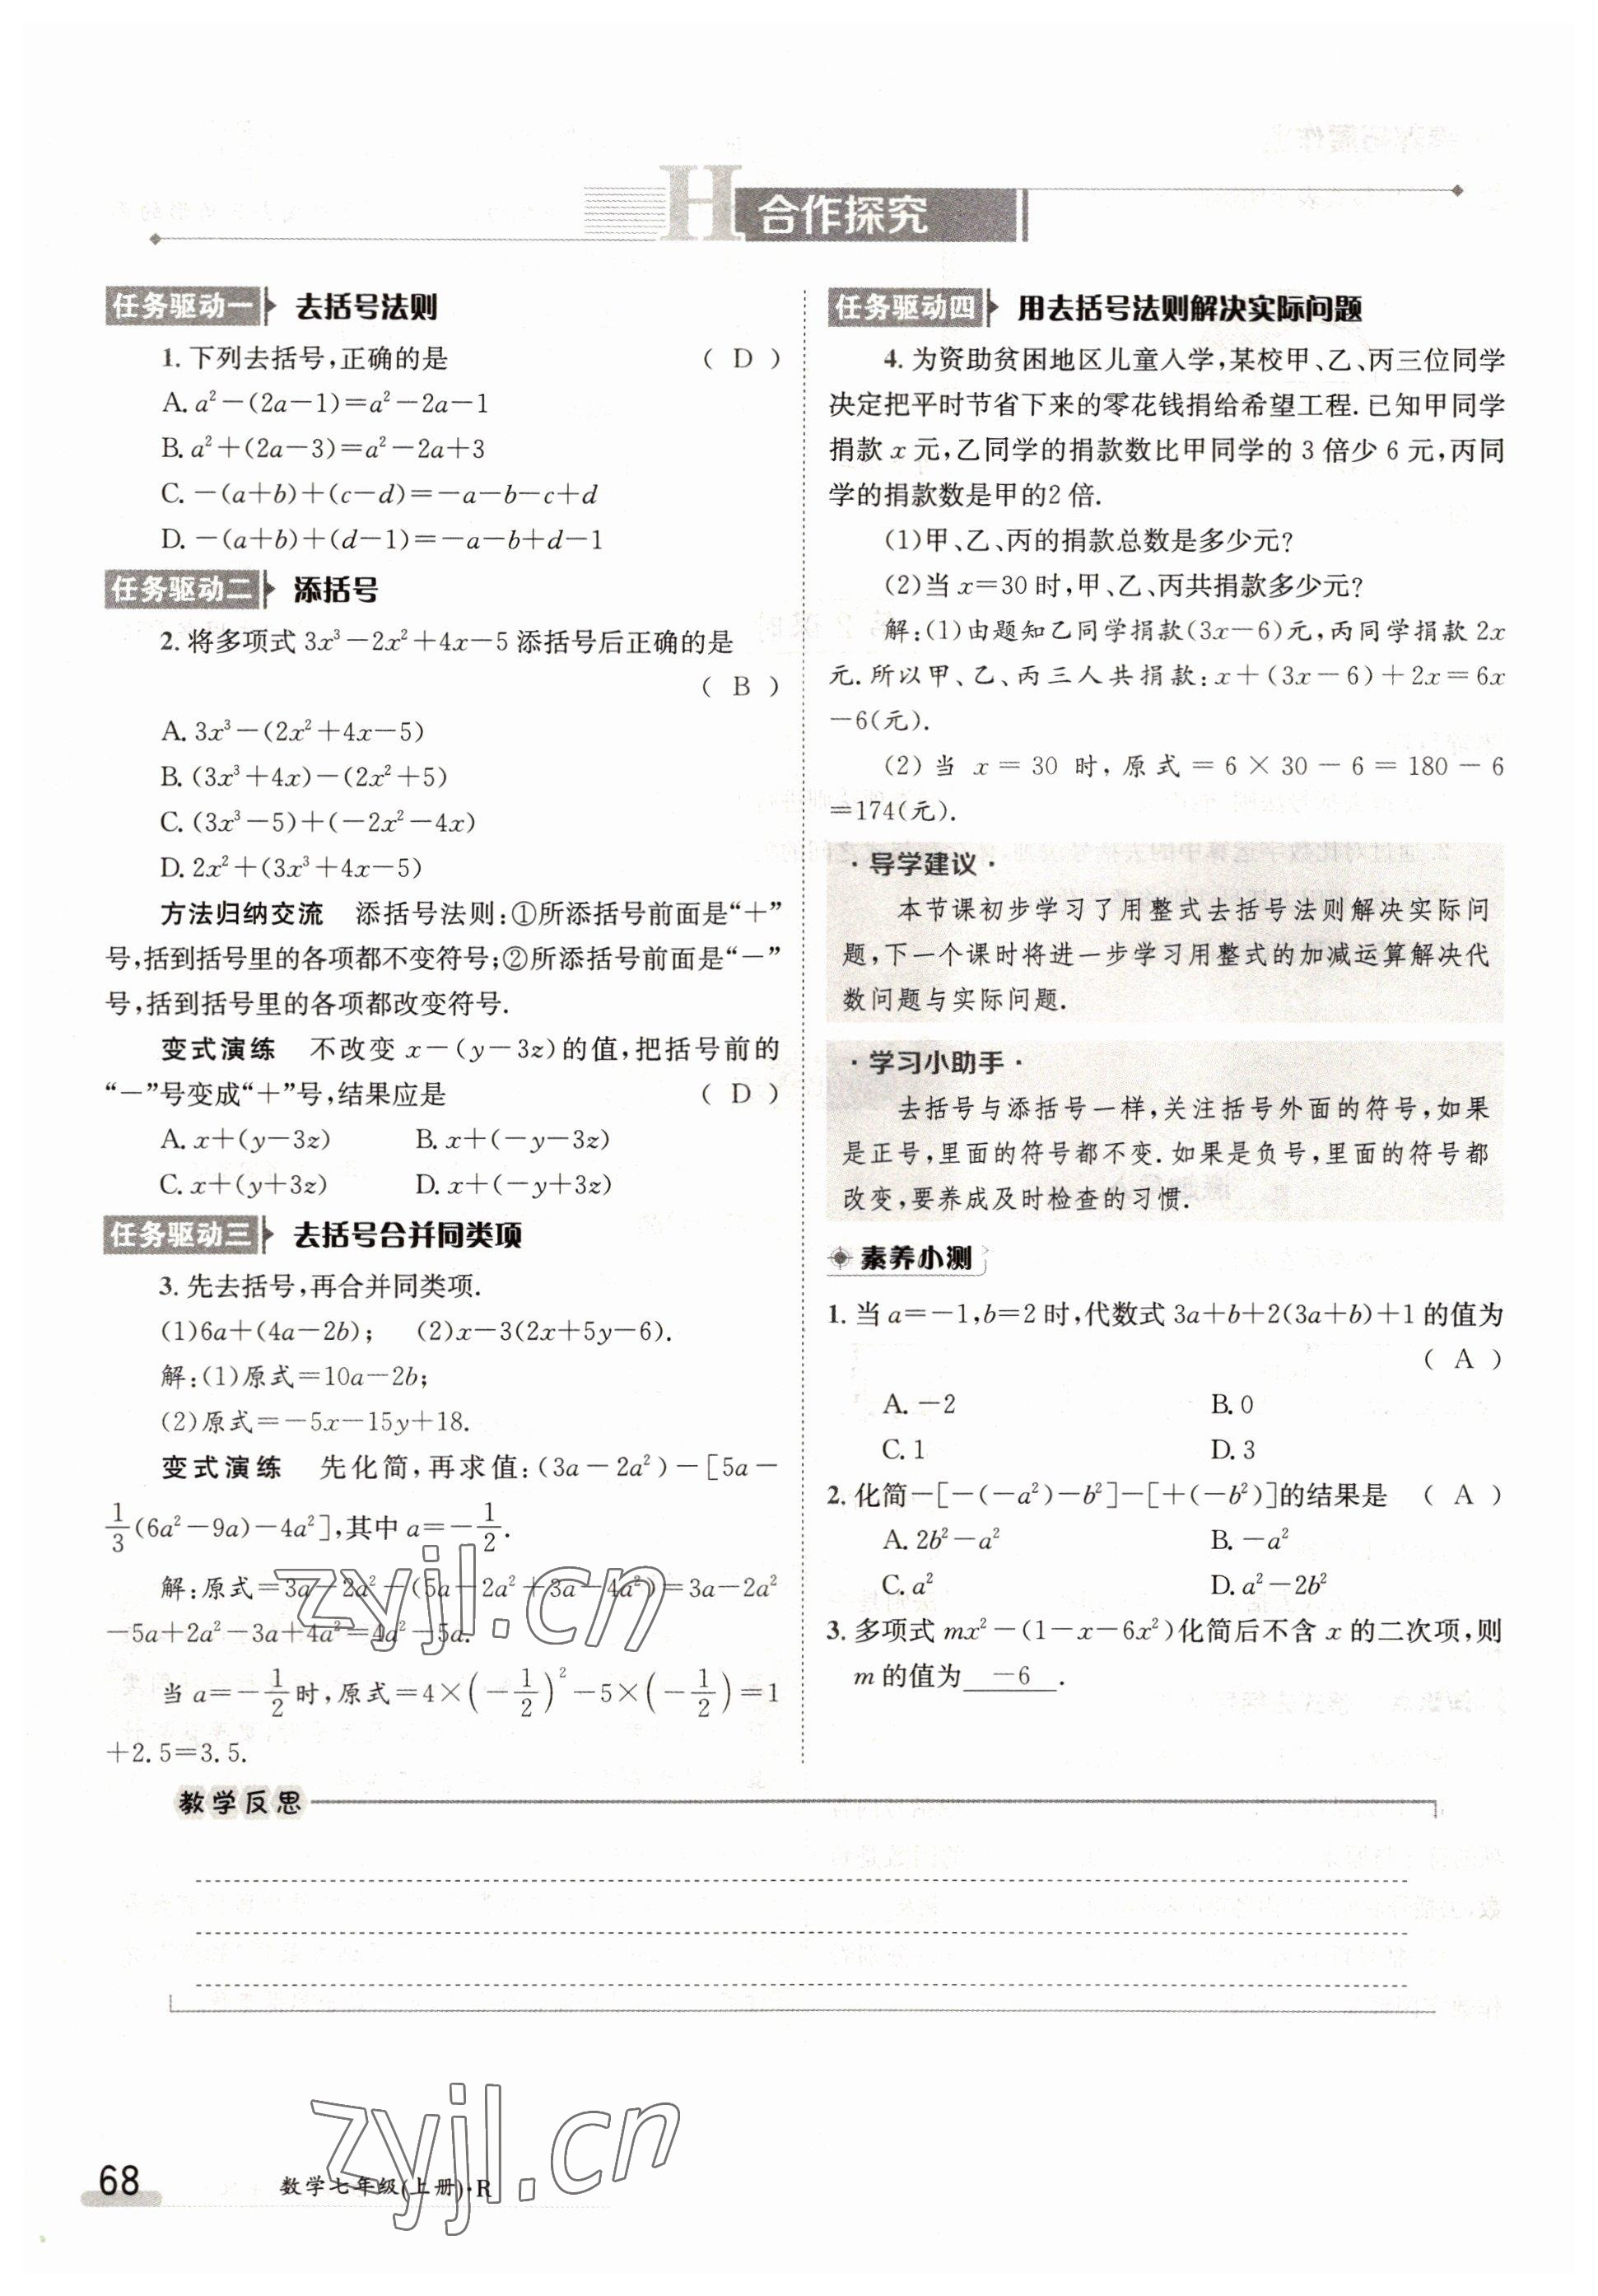 H 合作探究
任务驱动一 去括号法则
1. 下列去括号,正确的是 ( D )
A. a²-(2a-1)=a²-2a-1
B. a²+(2a-3)=a²-2a+3
C. -(a+b)+(c-d)=-a-b-c+d
D. -(a+b)+(d-1)=-a-b+d-1
任务驱动二 添括号
2. 将多项式 3x³-2x²+4x-5 添括号后正确的是
( B )
A. 3x³-(2x²+4x-5)
B. (3x³+4x)-(2x²+5)
C. (3x³-5)+(-2x²-4x)
D. 2x²+(3x³+4x-5)
方法归纳交流 添括号法则:①所添括号前面是“+”
号,括到括号里的各项都不变符号;②所添括号前面是“-”
号,括到括号里的各项都改变符号.
变式演练 不改变 x-(y-3z)的值,把括号前的
“-”号变成“+”号,结果应是 ( D )
A. x+(y-3z) B. x+(-y-3z)
C. x+(y+3z) D. x+(-y+3z)
任务驱动三 去括号合并同类项
3. 先去括号,再合并同类项.
(1)6a+(4a-2b); (2)x-3(2x+5y-6).
解:(1)原式=10a-2b;
(2)原式=-5x-15y+18.
变式演练 先化简,再求值:(3a-2a²)-[5a-
1/3(6a²-9a)-4a²],其中 a=-1/2.
解:原式=3a-2a²-(5a-2a²+3a-4a²)=3a-2a²
-5a+2a²-3a+4a²=4a²-5a.
当 a=-1/2时,原式=4×(-1/2)²-5×(-1/2)=1
+2.5=3.5.
任务驱动四 用去括号法则解决实际问题
4. 为资助贫困地区儿童入学,某校甲、乙、丙三位同学
决定把平时节省下来的零花钱捐给希望工程. 已知甲同学
捐款 x 元,乙同学的捐款数比甲同学的 3 倍少 6 元,丙同
学的捐款数是甲的2 倍.
(1)甲、乙、丙的捐款总数是多少元?
(2)当 x=30 时,甲、乙、丙共捐款多少元?
解:(1)由题知乙同学捐款(3x-6)元,丙同学捐款 2x
元. 所以甲、乙、丙三人共捐款:x+(3x-6)+2x=6x
-6(元).
(2)当 x=30 时,原式=6×30-6=180-6
=174(元).
·导学建议·
本节课初步学习了用整式去括号法则解决实际问
题,下一个课时将进一步学习用整式的加减运算解决代
数问题与实际问题.
·学习小助手·
去括号与添括号一样,关注括号外面的符号,如果
是正号,里面的符号都不变. 如果是负号,里面的符号都
改变,要养成及时检查的习惯.
素养小测
1. 当 a=-1,b=2 时,代数式 3a+b+2(3a+b)+1 的值为
( A )
A. -2 B. 0
C. 1 D. 3
2. 化简-[-(-a²)-b²]-[+(-b²)]的结果是 ( A )
A. 2b²-a² B. -a²
C. a² D. a²-2b²
3. 多项式 mx²-(1-x-6x²)化简后不含 x 的二次项,则
m 的值为 -6 .
教学反思
zyjl.cn
zyjl.cn
68 数学七年级(上册)·R